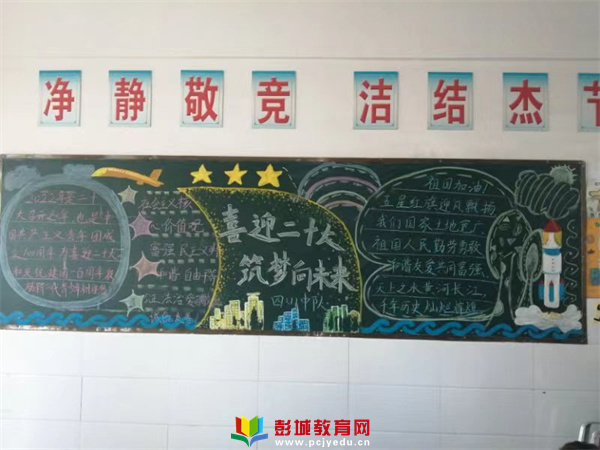 净 静 敬 竞 洁 结 杰 节
2022年是二十
大召开之年,也是中
国共产主义青年团成
社会主义核
心价值观
富强民主文明
和谐自由平等
喜迎二十大
筑梦向未来
四(4)中队
祖国加油!
五星红旗迎风飘扬
我们国家土地宽广
祖国人民勤劳勇敢
和谐友爱共同富强
天上之水黄河长江
千年历史灿烂辉煌
彭城教育网
www.pcjyedu.cn